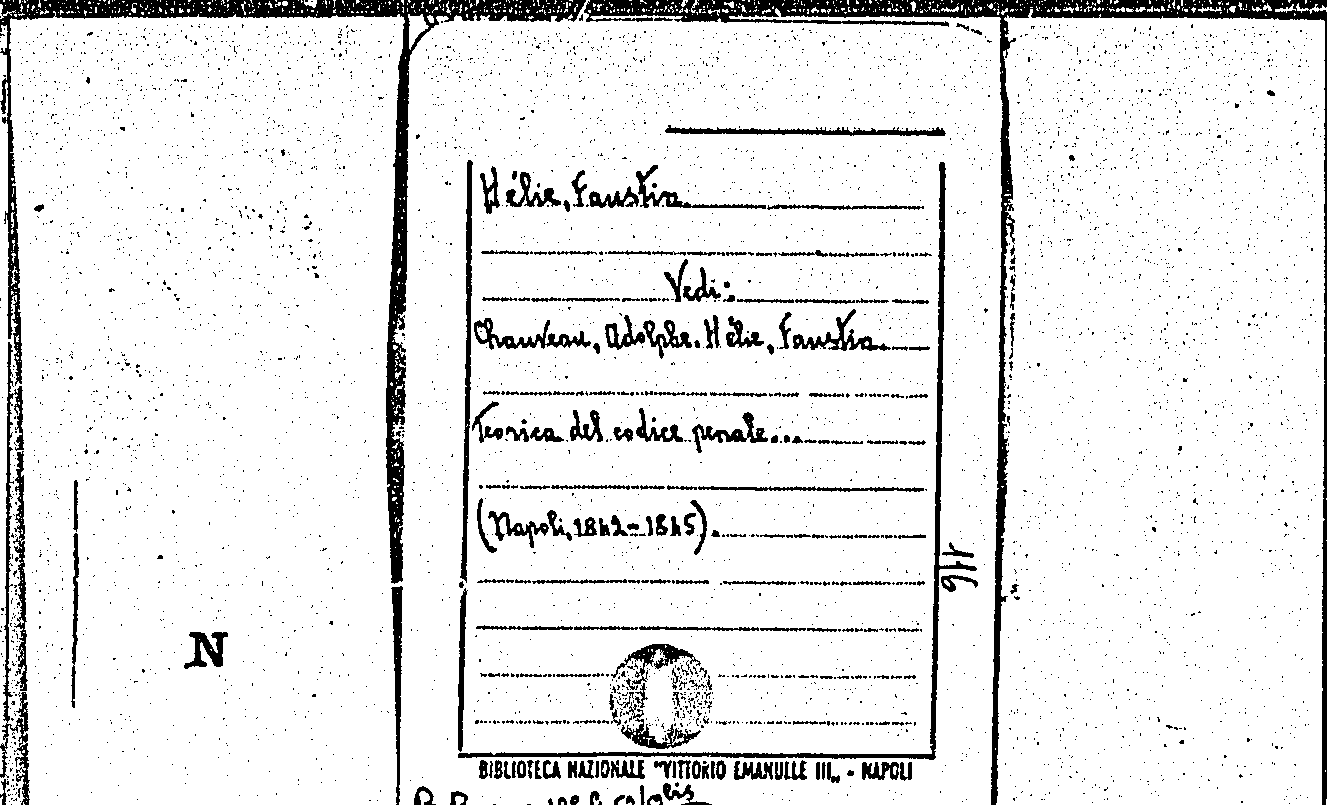 Hélie, Faustin.
Vedi:
Chauveau, Adolphe. Hélie, Faustin.
Teorica del codice penale...
(Napoli, 1842-1845).
116
N
BIBLIOTECA NAZIONALE "VITTORIO EMANUELE III„ - NAPOLI